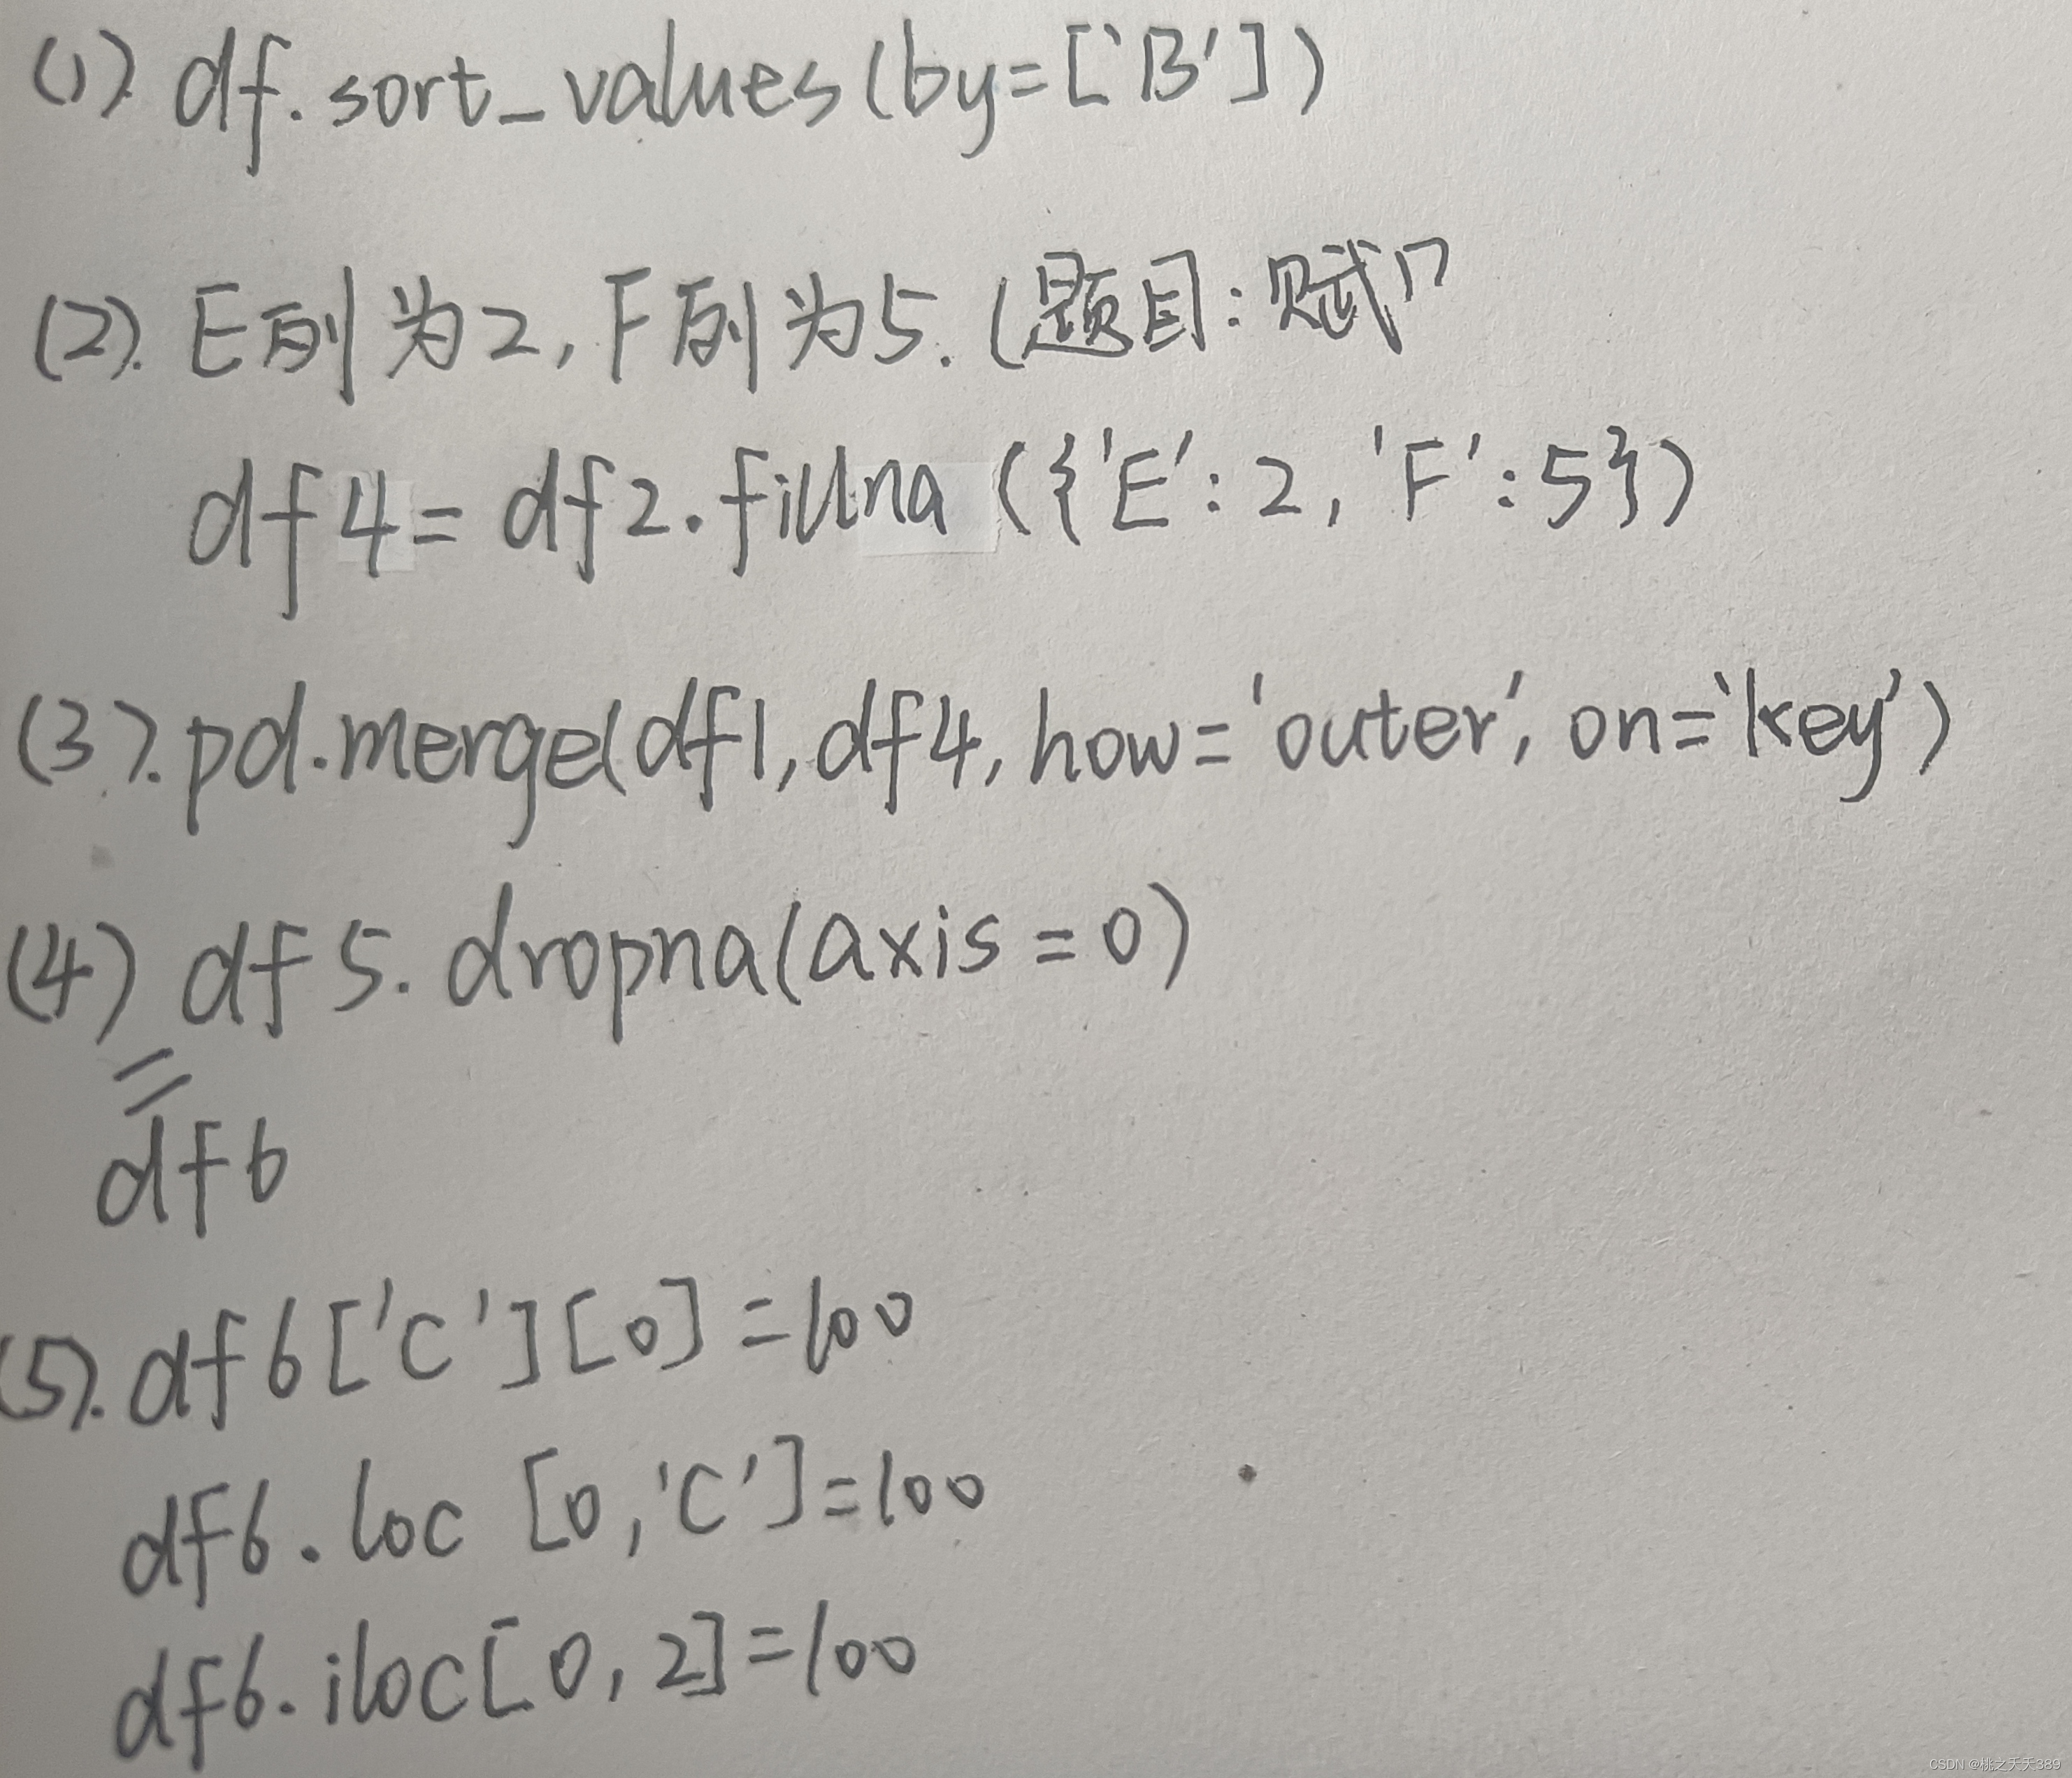 (1). df.sort_values(by=['B'])
(2). E列为2,F列为5.(题目:赋
df4=df2.fillna({'E':2,'F':5})
(3).pd.merge(df1,df4,how='outer',on='key')
(4) df5.dropna(axis=0)
=
df6
(5).df6['C'][0]=100
df6.loc [0,'C']=100
df6.iloc[0,2]=100
CSDN @桃之夭夭389